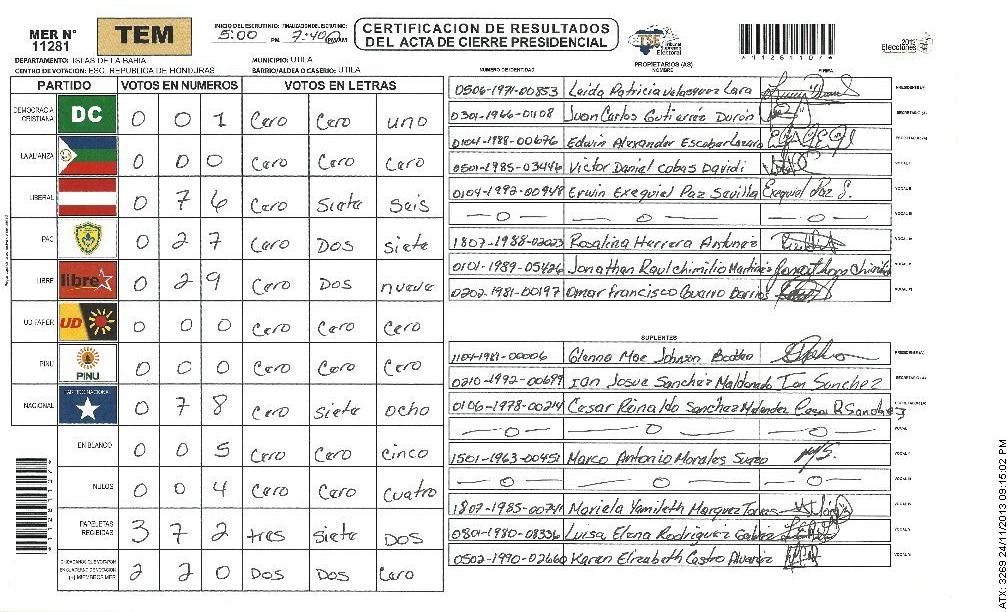 MER N° 11281
TEM
INICIO DEL ESCRUTINIO: 5:00 PM FINALIZACION DEL ESCRUTINIO: 7:40
CERTIFICACION DE RESULTADOS
DEL ACTA DE CIERRE PRESIDENCIAL
TSE Tribunal Supremo Electoral
Elecciones
*11281107*
DEPARTAMENTO: ISLAS DE LA BAHIA MUNICIPIO: UTILA
CENTRO DE VOTACION: ESC. REPUBLICA DE HONDURAS BARRIO/ALDEA O CASERIO: UTILA
PARTIDO VOTOS EN NUMEROS VOTOS EN LETRAS
DEMOCRACIA CRISTIANA DC 0 0 1 Cero Cero uno
LA ALIANZA 0 0 0 Cero Cero Cero
LIBERAL 0 7 6 Cero Siete Seis
PAC 0 2 7 Cero Dos siete
LIBRE libre 0 2 9 Cero Dos nueve
UD FAPER UD 0 0 0 Cero Cero Cero
PINU PINU 0 0 0 Cero Cero Cero
NACIONAL PARTIDO NACIONAL 0 7 8 Cero siete ocho
EN BLANCO 0 0 5 Cero Cero cinco
NULOS 0 0 4 Cero Cero Cuatro
PAPELETAS RECIBIDAS 3 7 2 tres siete Dos
CIUDADANOS QUE VOTARON EN CUADERNO DE VOTACION (+) MIEMBROS MER 2 2 0 Dos Dos Cero
PROPIETARIOS (AS)
NUMERO DE IDENTIDAD NOMBRE FIRMA
0506-1971-00853 Leida Patricia Velasquez Lara PRESIDENTE (A)
0301-1966-01108 Juan Carlos Gutierrez Duron SECRETARIO (A)
0104-1988-00676 Edwin Alexander Escobar Lazaro ESCRUTADOR (A)
0501-1985-03446 Victor Daniel Cobas Davidi VOCAL I
0104-1992-00948 Erwin Exequiel Paz Sevilla Exequiel Paz S. VOCAL II
—0— —0— —0— VOCAL III
1807-1988-02023 Rosalina Herrera Antunez VOCAL IV
0101-1989-05426 Jonathan Raul Chimilio Martinez VOCAL V
0202-1981-00197 Omar Francisco Barrios VOCAL VI
SUPLENTES
1104-1981-00006 Glenna Mae Johnson Bodden PRESIDENTE (A)
0210-1992-00699 Ian Josue Sanchez Maldonado Ian Sanchez SECRETARIO (A)
0106-1978-00214 Cesar Reinaldo Sanchez Melendez Cesar R Sanchez ESCRUTADOR (A)
—0— —0— —0— VOCAL I
1501-1963-00451 Marco Antonio Morales VOCAL II
—0— —0— —0— VOCAL III
1807-1985-00741 Mariela Yamileth Marquez VOCAL IV
0801-1980-08336 Luisa Elena Rodriguez VOCAL V
0502-1990-02660 Karen Elizabeth Castro Alvarez VOCAL VI
ATX: 3269 24/11/2013 09:15:02 PM